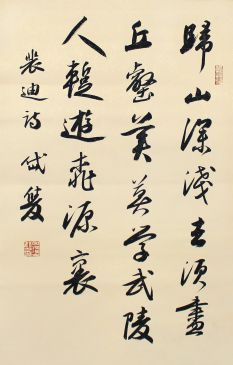 歸山深淺去須盡
丘壑美莫学武陵
人暫遊桃源裏
裴迪詩 岱